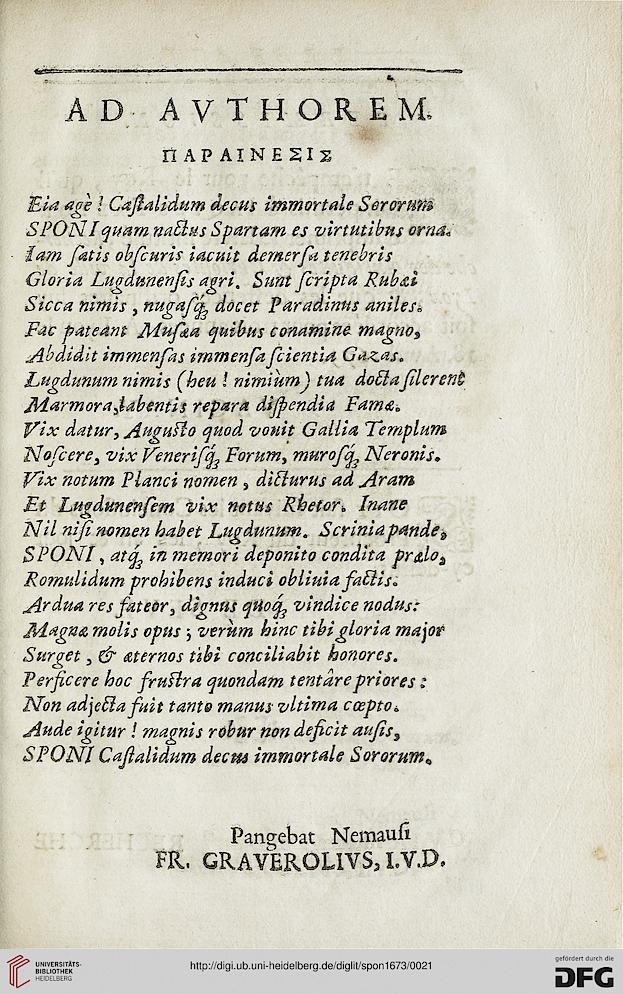 AD AVTHOREM.
ΠΑΡΑΙΝΕΣΙΣ
Eia agè ! Caſtalidum decus immortale Sororum
SPONI quam nactus Spartam es virtutibus orna.
Iam ſatis obſcuris iacuit demerſa tenebris
Gloria Lugdunenſis agri. Sunt ſcripta Rubæi
Sicca nimis, nugaſq́; docet Paradinus aniles.
Fac pateant Muſæa quibus conamine magno,
Abdidit immenſas immenſa ſcientia Gazas.
Lugdunum nimis (heu ! nimiùm) tua docta ſilerent
Marmora, labentis repara diſpendia Famæ.
Vix datur, Auguſto quod vouit Gallia Templum
Noſcere, vix Veneriſq́; Forum, muroſq́; Neronis.
Vix notum Planci nomen, dicturus ad Aram
Et Lugdunenſem vix notus Rhetor. Inane
Nil niſi nomen habet Lugdunum. Scrinia pande,
SPONI, atq́; in memori deponito condita prælo,
Romulidum prohibens induci obliuia factis.
Ardua res fateor, dignus quoq́; vindice nodus:
Magnæ molis opus ; verùm hinc tibi gloria major
Surget, & æternos tibi conciliabit honores.
Perficere hoc fruſtra quondam tentâre priores :
Non adjecta fuit tanto manus vltima cœpto.
Aude igitur ! magnis robur non deficit auſis,
SPONI Caſtalidum decus immortale Sororum.
Pangebat Nemauſi
FR. GRAVEROLIVS, I.V.D.
UNIVERSITÄTS-
BIBLIOTHEK
HEIDELBERG
http://digi.ub.uni-heidelberg.de/diglit/spon1673/0021
gefördert durch die
DFG